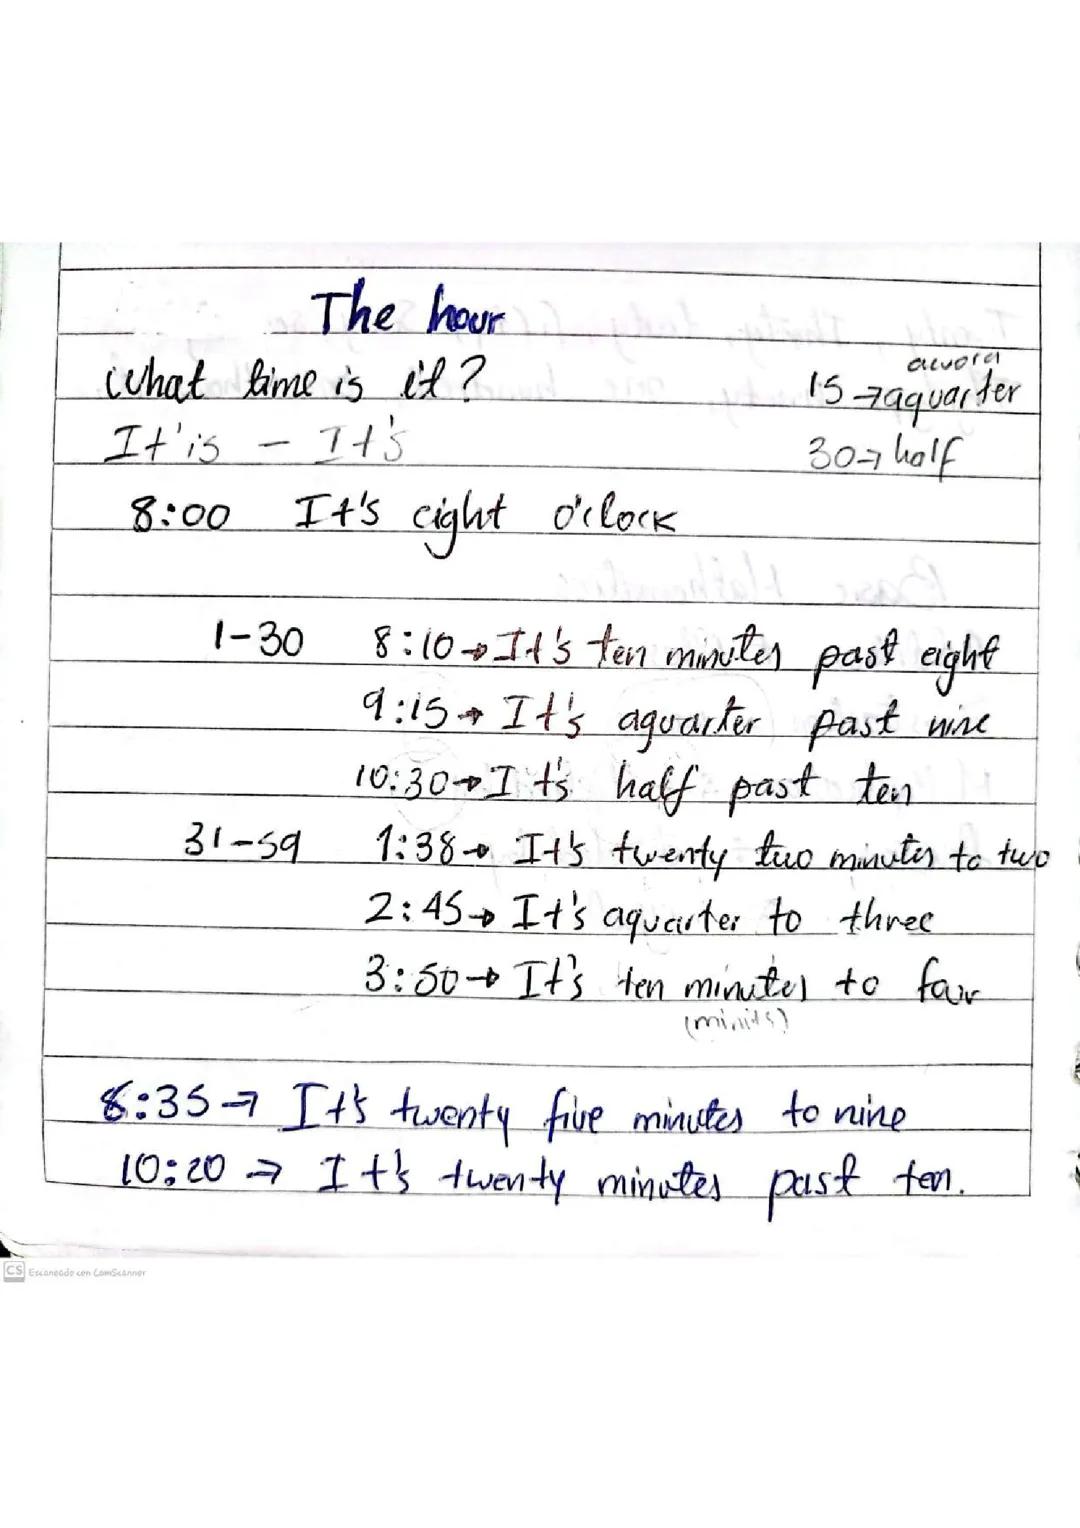 The hour
What time is it?
15 → aquarter
It'is - It's
30 → half
8:00 It's eight o'clock
1-30 8:10 → It's ten minutes past eight
9:15 → It's aquarter past nine
10:30 → It's half past ten
31-59 1:38 → It's twenty two minutes to two
2:45 → It's aquarter to three
3:50 → It's ten minutes to four
(minits)
8:35 → It's twenty five minutes to nine
10:20 → It's twenty minutes past ten.
CS Escaneado con CamScanner